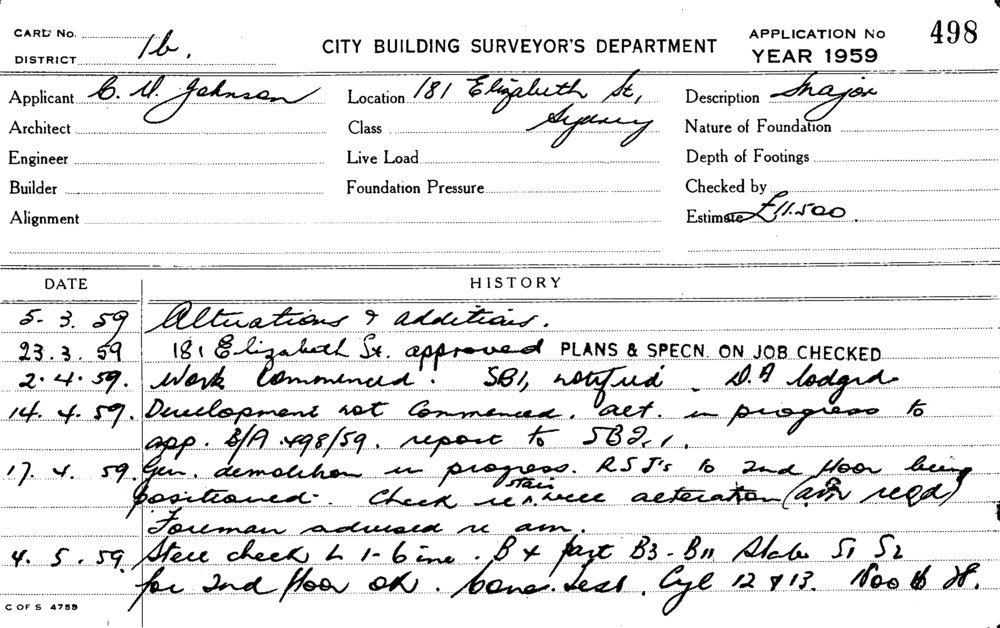 CARD No. 498
DISTRICT 1b. CITY BUILDING SURVEYOR'S DEPARTMENT APPLICATION No
YEAR 1959
Applicant C. V. Johnson Location 181 Elizabeth St, Description Major
Architect Class Sydney Nature of Foundation
Engineer Live Load Depth of Footings
Builder Foundation Pressure Checked by
Alignment Estimate £11.500
DATE HISTORY
5. 3. 59 Alterations & additions.
23. 3. 59 181 Elizabeth St. approved PLANS & SPECN. ON JOB CHECKED
2. 4. 59. Work Commenced. SB1, notified. D.A lodged
14. 4. 59. Development not Commenced. alt. in progress to
app. B/A 498/59. report to SB2,1.
17. 4. 59. Gen. demolition in progress. R.S.J's to 2nd floor being
positioned. Check re stair well alteration (am reqd)
Foreman advised re am.
4. 5. 59. Steel check L 1-6 inc. B4 part B3-B11 Slabs S1 S2
for 2nd floor ok. Conc. test. Cyl 12 & 13.
C OF S 4755